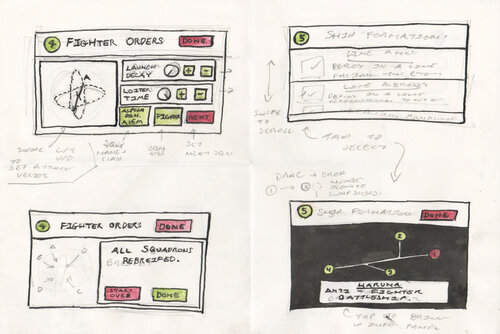 4 FIGHTER ORDERS DONE
LAUNCH
DELAY + -
LOITER
TIME + -
ALPHA
SQN.
FIGHTER
NEXT
SWIPE L/R
U/D
TO
SET ATTACK
VECTOR
SQDN
NAME +
CLASS
SET
NEXT SQN
5 SHIP FORMATION
LINE AHEAD
DEPLOY IN A LINE
FACING THE ENEMY
LINE ABREAST
DEPLOY IN A LINE
PERPENDICULAR TO
SWIPE
TO
SCROLL
TAP TO
SELECT
DRAG + DROP
1
TO
4 FIGHTER ORDERS DONE
ALL SQUADRONS
REBREIFED.
START
OVER
DONE
5 SHIP FORMATION DONE
2
1
4
3
HARUNA
ANTI - FIGHTER
BATTLESHIP.
TAP TO BRING
UP INFO PANEL